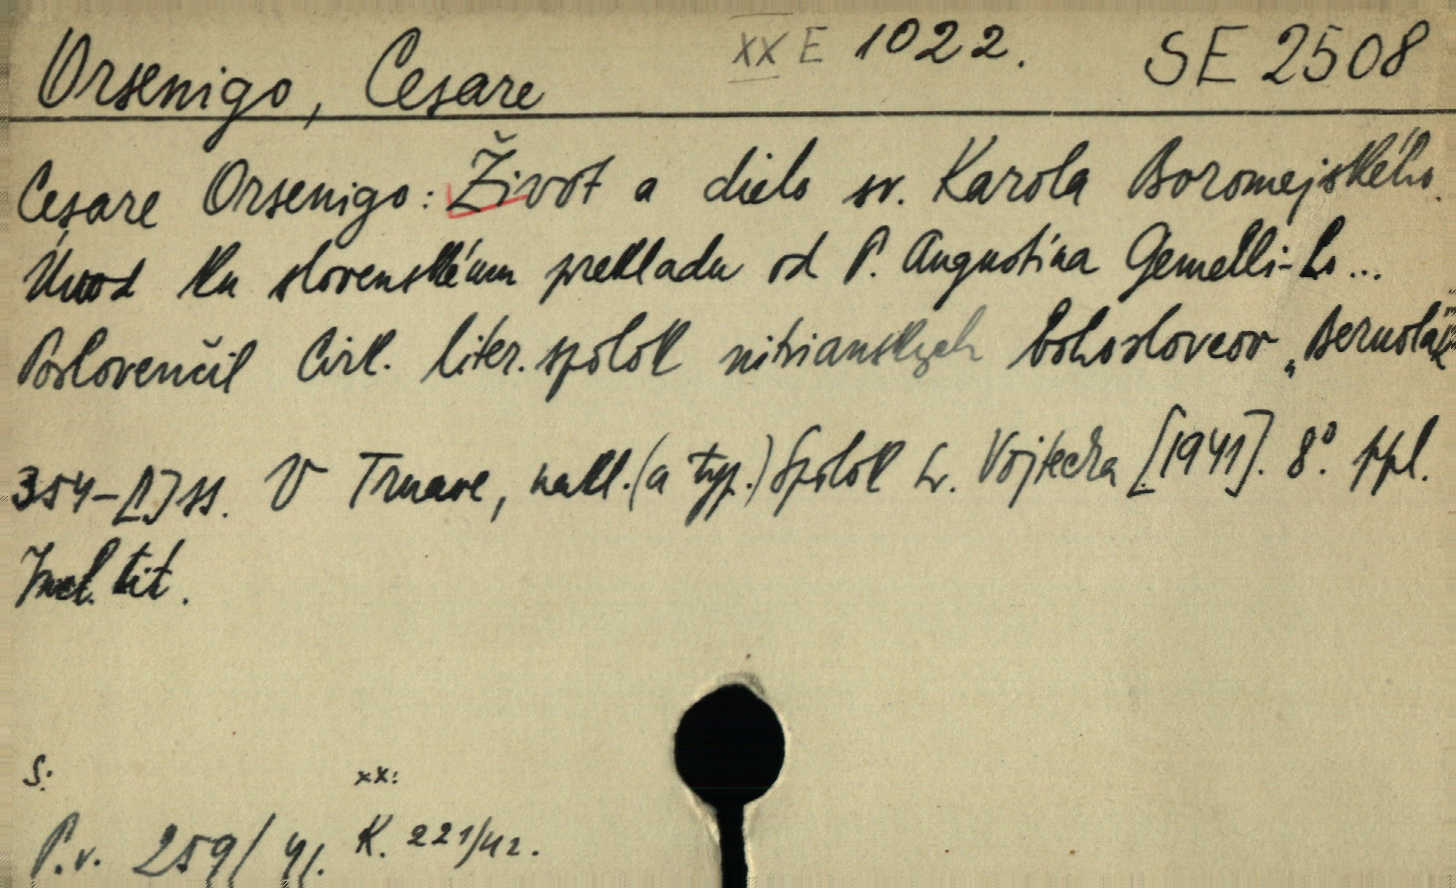 Orsenigo, Cesare XX E 1022. SE 2508
Cesare Orsenigo: Život a dielo sv. Karola Boromejského.
Úvod ku slovenskému prekladu od P. Augustína Gemelli-ho...
Poslovenčil Cirk. liter. spolok nitrianskych bohoslovcov „Bernolák"
354-[1] ss. V Trnave, nakl. (a typ.) Spolok sv. Vojtecha [1941]. 8°. ppl.
tit.
S: xx:
P.v. 259/41. K. 221/42.